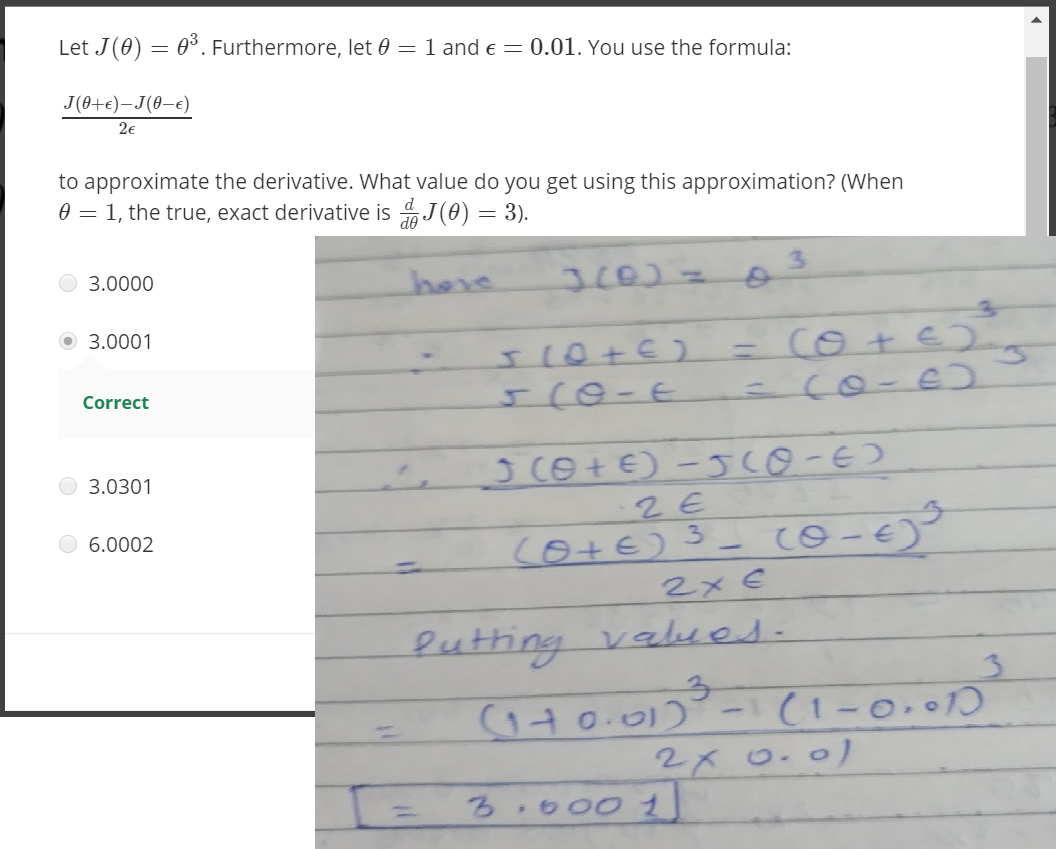 Let J(θ) = θ³. Furthermore, let θ = 1 and ϵ = 0.01. You use the formula:
J(θ+ϵ)−J(θ−ϵ)
2ϵ
to approximate the derivative. What value do you get using this approximation? (When
θ = 1, the true, exact derivative is d/dθ J(θ) = 3).
3.0000
3.0001
Correct
3.0301
6.0002
here J(θ) = θ³
∴ J(θ+ϵ) = (θ+ϵ)³
J(θ-ϵ = (θ-ϵ)³
∴ J(θ+ϵ) - J(θ-ϵ)
2ϵ
= (θ+ϵ)³ - (θ-ϵ)³
2×ϵ
Putting values.
= (1+0.01)³ - (1-0.01)³
2×0.01
= 3.0001